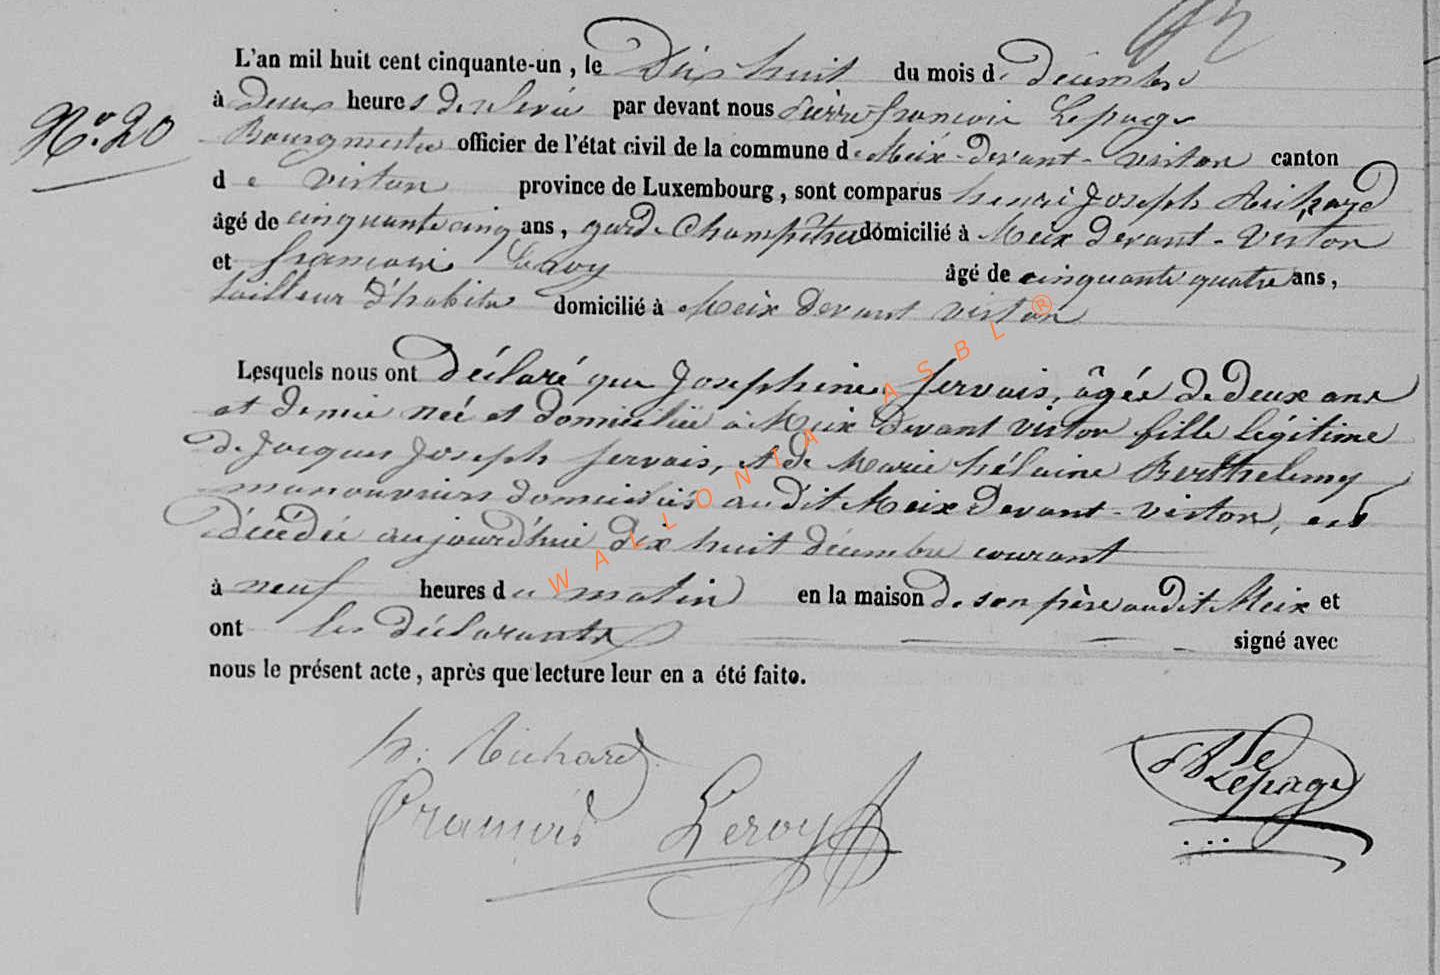 N.o 20
L'an mil huit cent cinquante-un, le Dix huit du mois de décembre
à deux heures de relevée par devant nous Pierre françois Lepage
Bourgmestre officier de l'état civil de la commune de Meix-devant-virton canton
de virton province de Luxembourg, sont comparus henri Joseph Richard
âgé de cinquante cinq ans, garde Champêtre domicilié à Meix devant-Virton
et françois Leroy âgé de cinquante quatre ans,
tailleur d'habits domicilié à Meix Devant virton
Lesquels nous ont déclaré que Josephine Servais, âgée de deux ans
et demie née et domiciliée à Meix Devant virton fille légitime
de Jacques Joseph Servais, et de Marie hélaine Berthelemy
manouvriers domiciliés audit Meix Devant-virton, est
décédée aujourd'hui dix huit décembre courant
à neuf heures du matin en la maison de son père audit Meix et
ont les déclarants signé avec
nous le présent acte, après que lecture leur en a été faite.
h. Richard
François Leroy
Lepage
WALLONIA ASBL ®